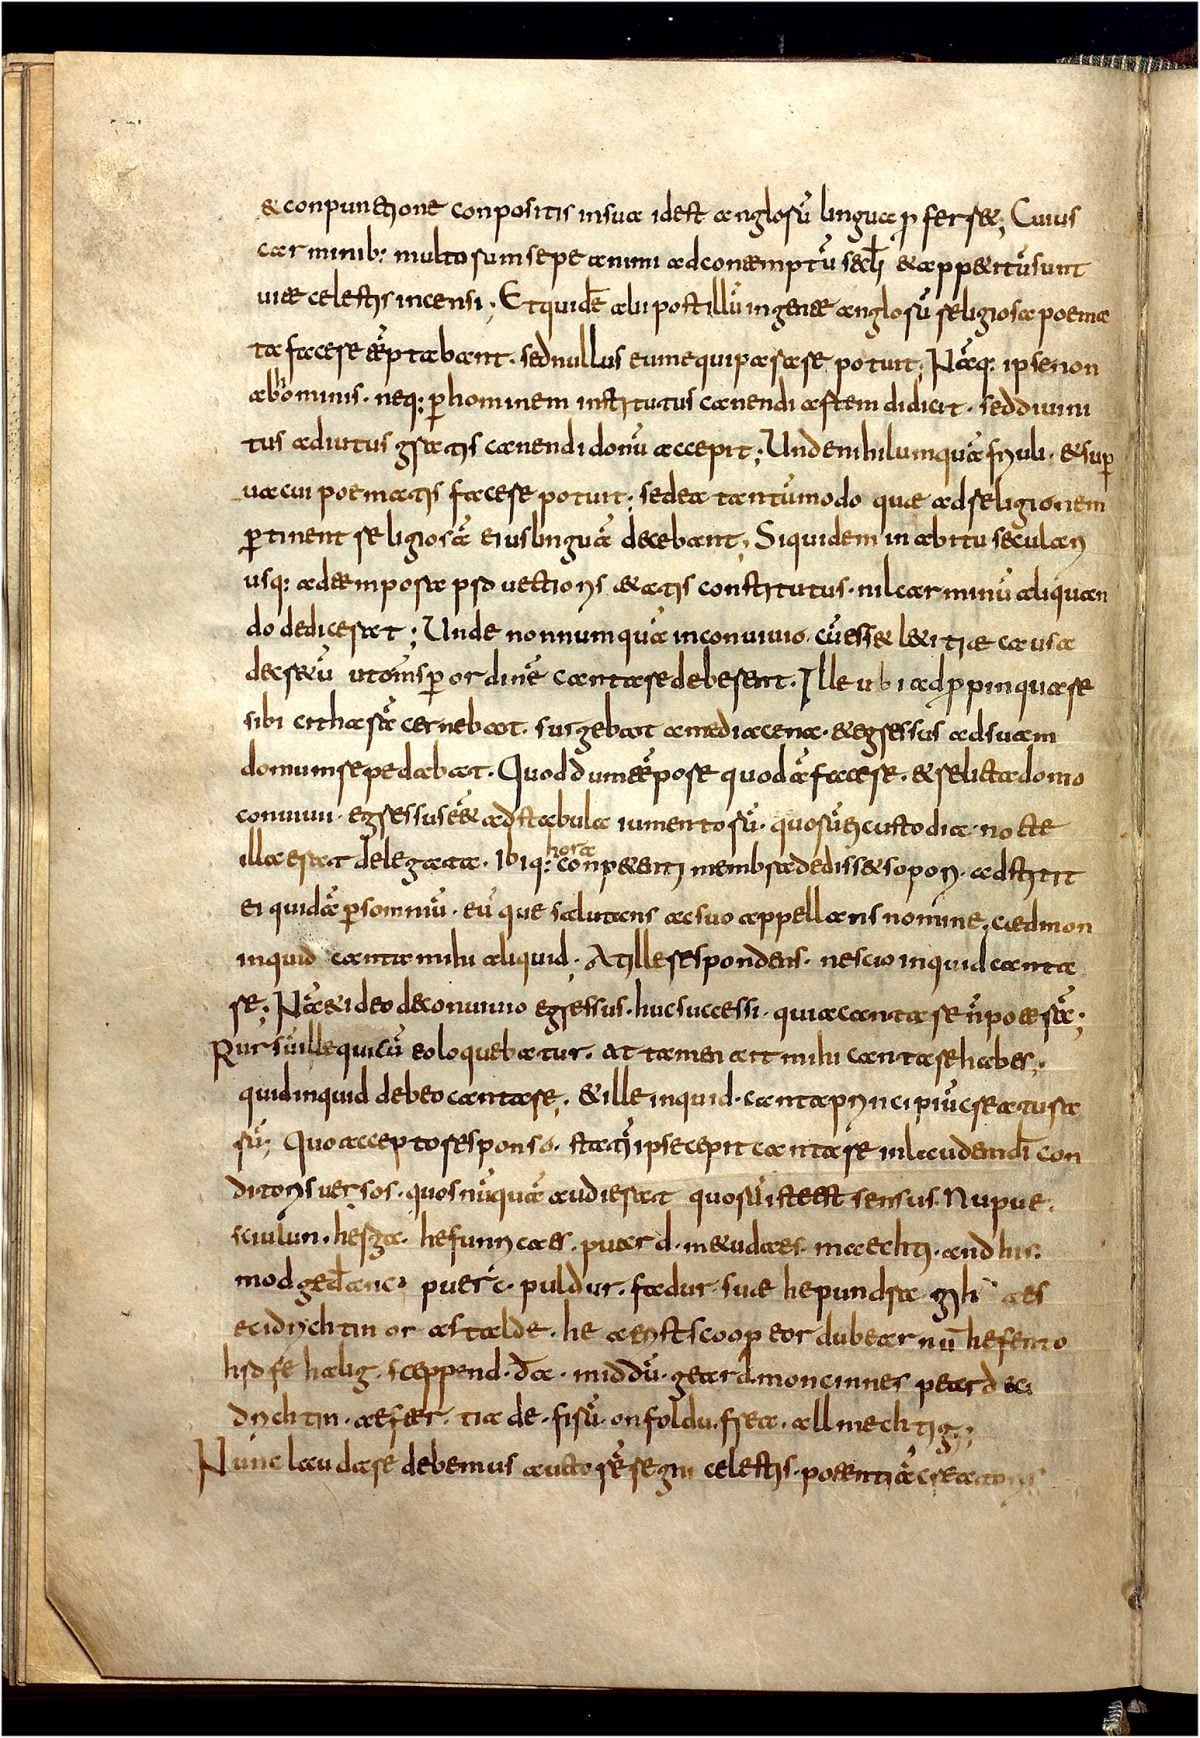 & conpunctione conpositis in sua id est anglorū lingua p ferret; Cuius
carminib: multorum sepe animi ad contemptū sęcłi & appetitū sunt
uitae celestis incensi; Et quidē alii post illū in gente anglorū religiosa poema
ta facere tēptabant. sed nullus eum equiparare potuit; Nāq: ipse non
ab hominis. neq: p hominem institutus canendi artem didicit. sed diuini
tus adiutus gratis canendi donū accepit; Unde nihil umquā friuoli. & sup
uacui poematis facere potuit. sed ea tantūmodo quae ad religionem
ptinent religiosā eius linguā decebant; Siquidem in abitu seculari
usq: ad tempora prouectioris aetatis constitutus. nil carminū aliquan
do dedicerat; Unde nonnumquā in conuiuio. cū esset laetitiae causa
decretū ut om̄s p ordinē cantare deberent. Ille ubi adppinquare
sibi citharā cernebat. surgebat a media cena. & egressus ad suam
domum repedabat. Quod dum tēpore quodā faceret. & relicta domo
conuiuii. egressus eēt ad stabula iumentorū. quorū ei custodia. nocte
illa erat delegata. Ibiq: hora conpetenti membra dedisset sopori. adstitit
ei quidā p somniū. eūque salutans ac suo appellans nomine. caedmon
inquid canta mihi aliquid. At ille respondens. nescio inquid canta
re; Nā & ideo de conuiuio egressus. huc successi. quia cantare n̄ poterā;
Rursū ille qui cū eo loquebatur. at tamen ait mihi cantare habes;
quid inquid debeo cantare; & ille inquid. canta principiū creatura
rū; Quo accepto responso. statī ipse cepit cantare in laudem d̄i con
ditoris uersos. quos nūquā audierat quorū iste est sensus. Nu pue.
sciulun. herga. hefunricaes. puard. metudaes. maechti. and his.
modgedanc. puerc. puldur. fadur. suae he pundra gihuaes
eci drichtin or astalde. he aerist scoop eordu bearnū hefen to
hrofe halig. sceppend. da. middū. geard. moncinnes peard eci
drichtin. aefter. tiade. firū. on foldu. frea. allmechtig;
Nunc laudare debemus auctorē regni celestis. potentiā creatoris